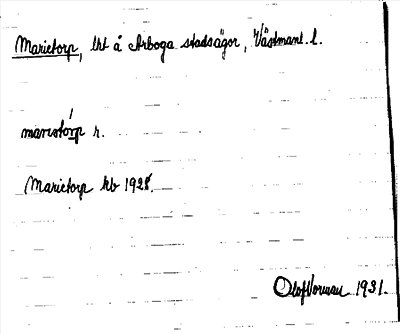 Marietorp, lht å Arboga stadsägor, Västmanl. l.
maristórp n.
Marietorp kb 1928.
Olof Norman 1931.